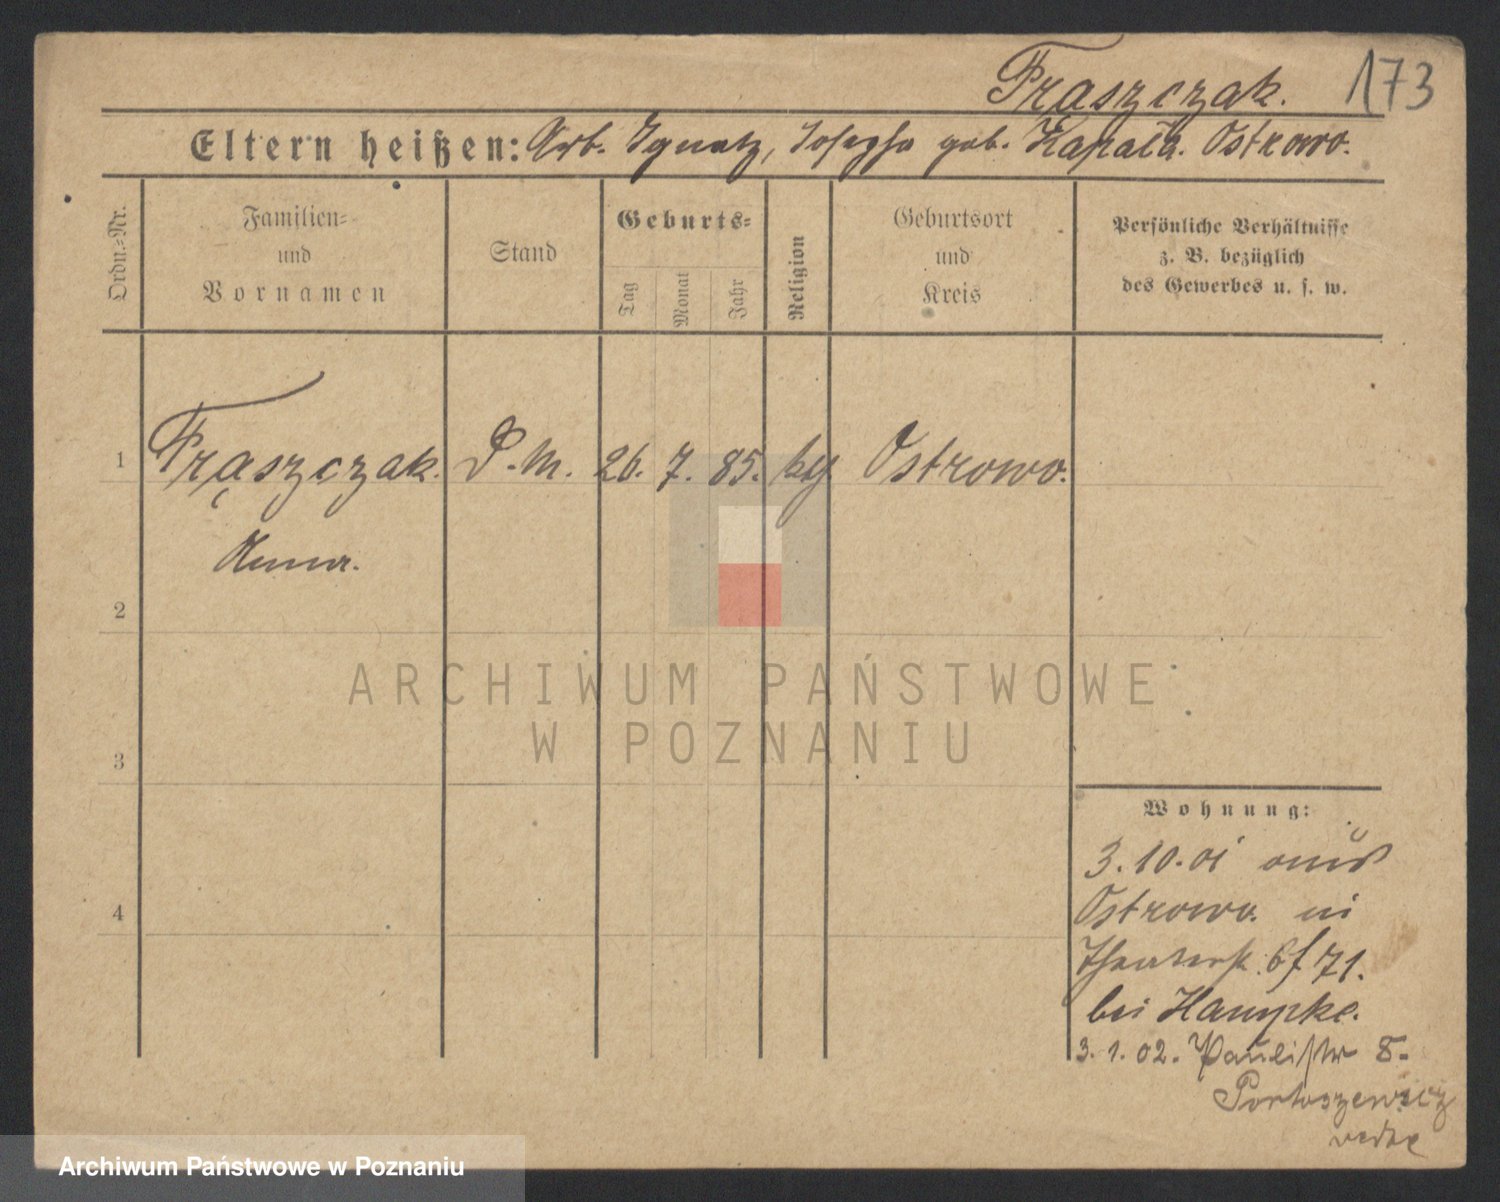 Frąszczak. 173
Eltern heißen: Arb. Ignatz, Josepha geb. Kapała. Ostrowo.
Ordn.-Nr.
Familien-
und
Vornamen
Stand
Geburts-
Tag
Monat
Jahr
Religion
Geburtsort
und
Kreis
Persönliche Verhältnisse
z. B. bezüglich
des Gewerbes u. s. w.
1 Frąszczak. D. M. 26. 7. 85. kth. Ostrowo.
Anna.
2
3
4
Wohnung:
3.10.01 aus
Ostrowo. in
Theaterstr. 6 / 71.
bei Hampke.
3. 1. 02. Paulistr 8.
ARCHIWUM PAŃSTWOWE
W POZNANIU
Archiwum Państwowe w Poznaniu